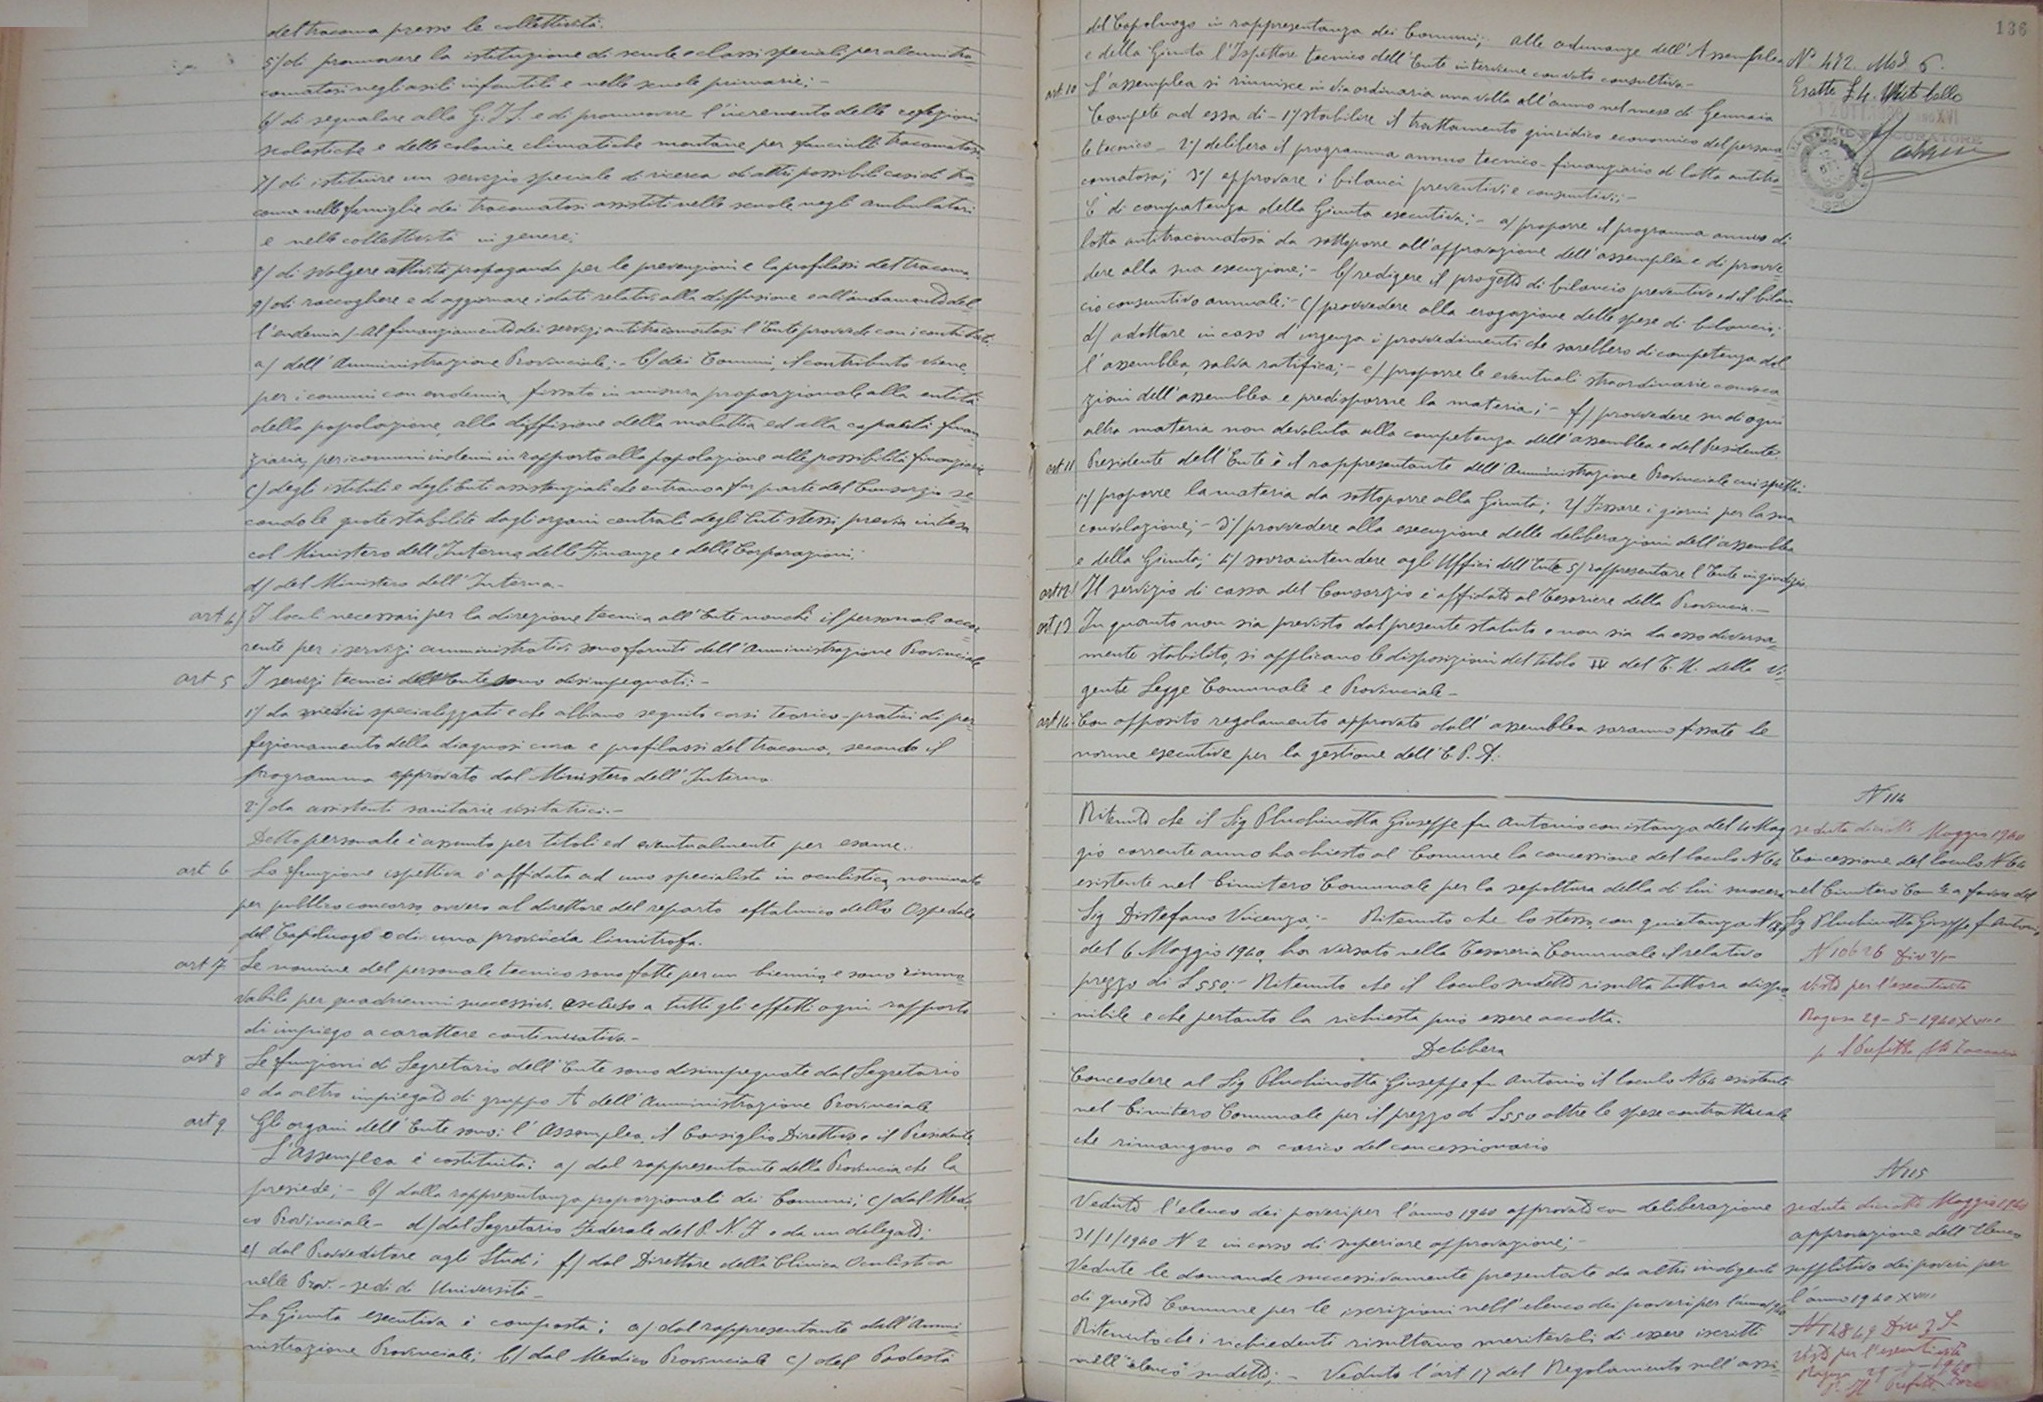 del tracoma presso le collettività.
5°/ di promuovere la istituzione di scuole o classi speciali per alunni tra=
comatosi negli asili infantili e nelle scuole primarie; -
6/ di segnalare alla G.I.L. e di promuovere l'incremento delle
scolastiche e delle colonie climatiche montane per fanciulli tracomatosi
7/ di istituire un servizio speciale di ricerca di altri possibili casi di tra=
coma nelle famiglie dei tracomatosi assistiti nelle scuole negli ambulatori
e nelle collettività in genere;
8/ di svolgere attività propaganda per le prevenzioni e la profilassi del tracoma
9/ di raccogliere e di aggiornare i dati relativi alla diffusione e all'andamento del=
l'endemia / Al finanziamento dei servizi antitracomatosi l'Ente provvede con i contributi
a/ dell'Amministrazione Provinciale; - b/ dei Comuni, il contributo viene
per i comuni con endemia fissato in misura proporzionale alla entità
della popolazione, alla diffusione della malattia ed alla capacità finan=
ziaria, per i comuni indenni in rapporto alla popolazione alle possibilità finanziarie
c/ degli istituti e degli Enti assistenziali che entrano a far parte del Consorzio se=
condo le quote stabilite dagli organi centrali degli Enti stessi, previa intesa
col Ministero dell'Interno delle Finanze e delle Corporazioni.
d/ del Ministero dell'Interno -
art 4) I locali necessari per la direzione tecnica all'Ente nonchè il personale occor=
rente per i servizi amministrativi sono forniti dell'Amministrazione Provinciale
art 5 I servizi tecnici dell'Ente sono disimpegnati: -
1°/ da medici specializzati e che abbiano seguito corsi teorico-pratici di per=
fezionamento della diagnosi cura e profilassi del tracoma, secondo il
programma approvato dal Ministero dell'Interno
2°/ da assistenti sanitarie visitatrici. -
Detto personale è assunto per titoli ed eventualmente per esame.
art 6 La funzione ispettiva è affidata ad uno specialista in oculistica nominato
per pubblico concorso ovvero al direttore del reparto oftalmico dello Ospedale
del Capoluogo o di una provincia limitrofa.
art 7 Le nomine del personale tecnico sono fatte per un biennio e sono rinno=
vabili per quadrienni successivi, escluso a tutti gli effetti ogni rapporto
di impiego a carattere continuativo. -
art 8 Le funzioni di Segretario dell'Ente sono disimpegnate dal Segretario
o da altro impiegato di gruppo A dell'Amministrazione Provinciale
art 9 Gli organi dell'Ente sono: l'Assemplea, il Consiglio Direttivo e il Presidente
L'Assemplea è costituita: a/ dal rappresentante della Provincia che la
presiede; - b/ dalla rappresentanza proporzionali dei Comuni; c/ dal Medi=
co Provinciale - d/ dal Segretario Federale del P.N.F. o da un delegato;
e/ dal Provveditore agli Studi; f/ dal Direttore della Clinica Oculistica
nelle Prov. - sedi di Università -
La Giunta esecutiva è composta: a/ dal rappresentante dell'Ammi=
nistrazione Provinciale; b/ dal Medico Provinciale c/ del Podestà
136
del Capoluogo in rappresentanza dei Comuni; alle adunanze dell'Assemplea
e della Giunta l'Ispettore tecnico dell'Ente interviene con voto consultivo -
art. 10 L'assemplea si riunisce in via ordinaria una volta all'anno nel mese di Gennaio
Compete ad essa di - 1°/ stabilire il trattamento giuridico economico del persona=
le tecnico - 2°/ delibera il programma annuo tecnico-finanziario di lotta antitra=
comatosa; 3°/ approvare i bilanci preventivi e consuntivi; -
È di competenza della Giunta esecutiva: - a/ proporre il programma annuo di
lotta antitracomatosa da sottoporre all'approvazione dell'assemplea e di provve=
dere alla sua esecuzione; - b/ redigere il progetto di bilancio preventivo ed il bilan=
cio consuntivo annuale; - c/ provvedere alla erogazione delle spese di bilancio;
d/ adottare in caso d'urgenza i provvedimenti che sarebbero di competenza del=
l'assemblea, salva ratifica; - e/ proporre le eventuali straordinarie convoca=
zioni dell'assemblea e predisporne la materia; - f/ provvedere su di ogni
altra materia non devoluta alla competenza dell'assemblea e del Presidente.
art. 11 Presidente dell'Ente è il rappresentante dell'Amministrazione Provinciale cui spetta:
1°/ proporre la materia da sottoporre alla Giunta; 2/ fissare i giorni per la sua
convolazione; - 3°/ provvedere alla esecuzione delle deliberazioni dell'assemblea
e della Giunta; 4°/ sovraintendere agli Uffici dell'Ente 5/ rappresentare l'Ente in giudizio
art 12 Il servizio di cassa del Consorzio è affidato al Tesoriere della Provincia. -
art. 13 In quanto non sia previsto dal presente statuto o non sia da esso diversa=
mente stabilito, si applicano le disposizioni del titolo IV del T.U. della vi=
gente Legge Comunale e Provinciale -
art. 14 Con apposito regolamento approvato dall'assemblea saranno fissate le
norme esecutive per la gestione dell'E.P.A.
N° 472. Mod 6.
Esatte £.4.
N 114
seduta Maggio 1940
Concessione del loculo N 64
nel Cimitero Com le a favore del
Sig Pluchinotta Giuseppe fu Antonio
N 10626 Div
Visto per l'esecutività
Ragusa 29-5-1940 XVIII
p Il Prefetto
Ritenuto che il Sig Pluchinotta Giuseppe fu Antonio con istanza del 4 Mag=
gio corrente anno ha chiesto al Comune la concessione del loculo N 64
esistente nel Cimitero Comunale per la sepoltura della di lui suocera
Sig Distefano Vincenza; - Ritenuto che lo stesso, con quietanza N
del 6 Maggio 1940, ha versato nella Tesoreria Comunale il relativo
prezzo di £ 550 - Ritenuto che il loculo sudetto risulta tuttora dispo=
nibile e che pertanto la richiesta può essere accolta.
Delibera
Concedere al Sig Pluchinotta Giuseppe fu Antonio il loculo N 64 esistente
nel Cimitero Comunale per il prezzo di £ 550 oltre le spese contrattuali
che rimangono a carico del concessionario
N 115
seduta Maggio 1940
approvazione dell'Elenco
suppletivo dei poveri per
l'anno 1940 XVIII
N 14849 Div 3 S
Visto per l'esecutività
Ragusa 1940
Il Prefetto
Veduto l'elenco dei poveri per l'anno 1940 approvato con deliberazione
31/1/1940 N 2 in corso di superiore approvazione; -
Vedute le domande successivamente presentate da altri indigenti
di questo Comune per le iscrizioni nell'elenco dei poveri per l'anno 1940
Ritenuto che i richiedenti risultano meritevoli di essere iscritti
nell'elenco sudetto; - Veduto l'art 17 del Regolamento sull'assi=